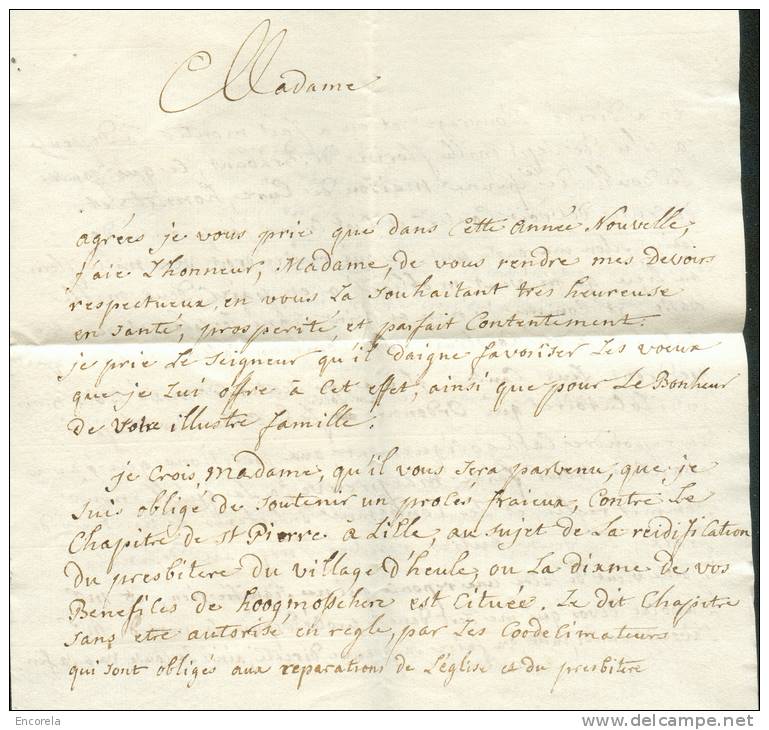 Madame
agrées je vous prie que dans cette année Nouvelle,
j'aie L'honneur, Madame, de vous rendre mes devoirs
respectueux, en vous La souhaitant très heureuse
en santé, prosperité, et parfait Contentement.
je prie Le seigneur qu'il daigne favoriser Les voeux
que je Lui offre à Cet effet, ainsi que pour Le Bonheur
de votre illustre famille.
je Crois, Madame, qu'il vous sera parvenu, que je
suis obligé de soutenir un procès fraieux, Contre Le
Chapitre de St Pierre à Lille, au sujet de La reidification
du presbitere du village d'heule, ou La dixme de vos
Benefices de hoogmosschere est Cituée. Le dit Chapitre
sans etre autorisé en regle, par Les Coodecimateurs
qui sont obligés aux reparations de L'église et du presbitere
Encorela
delcampe.net